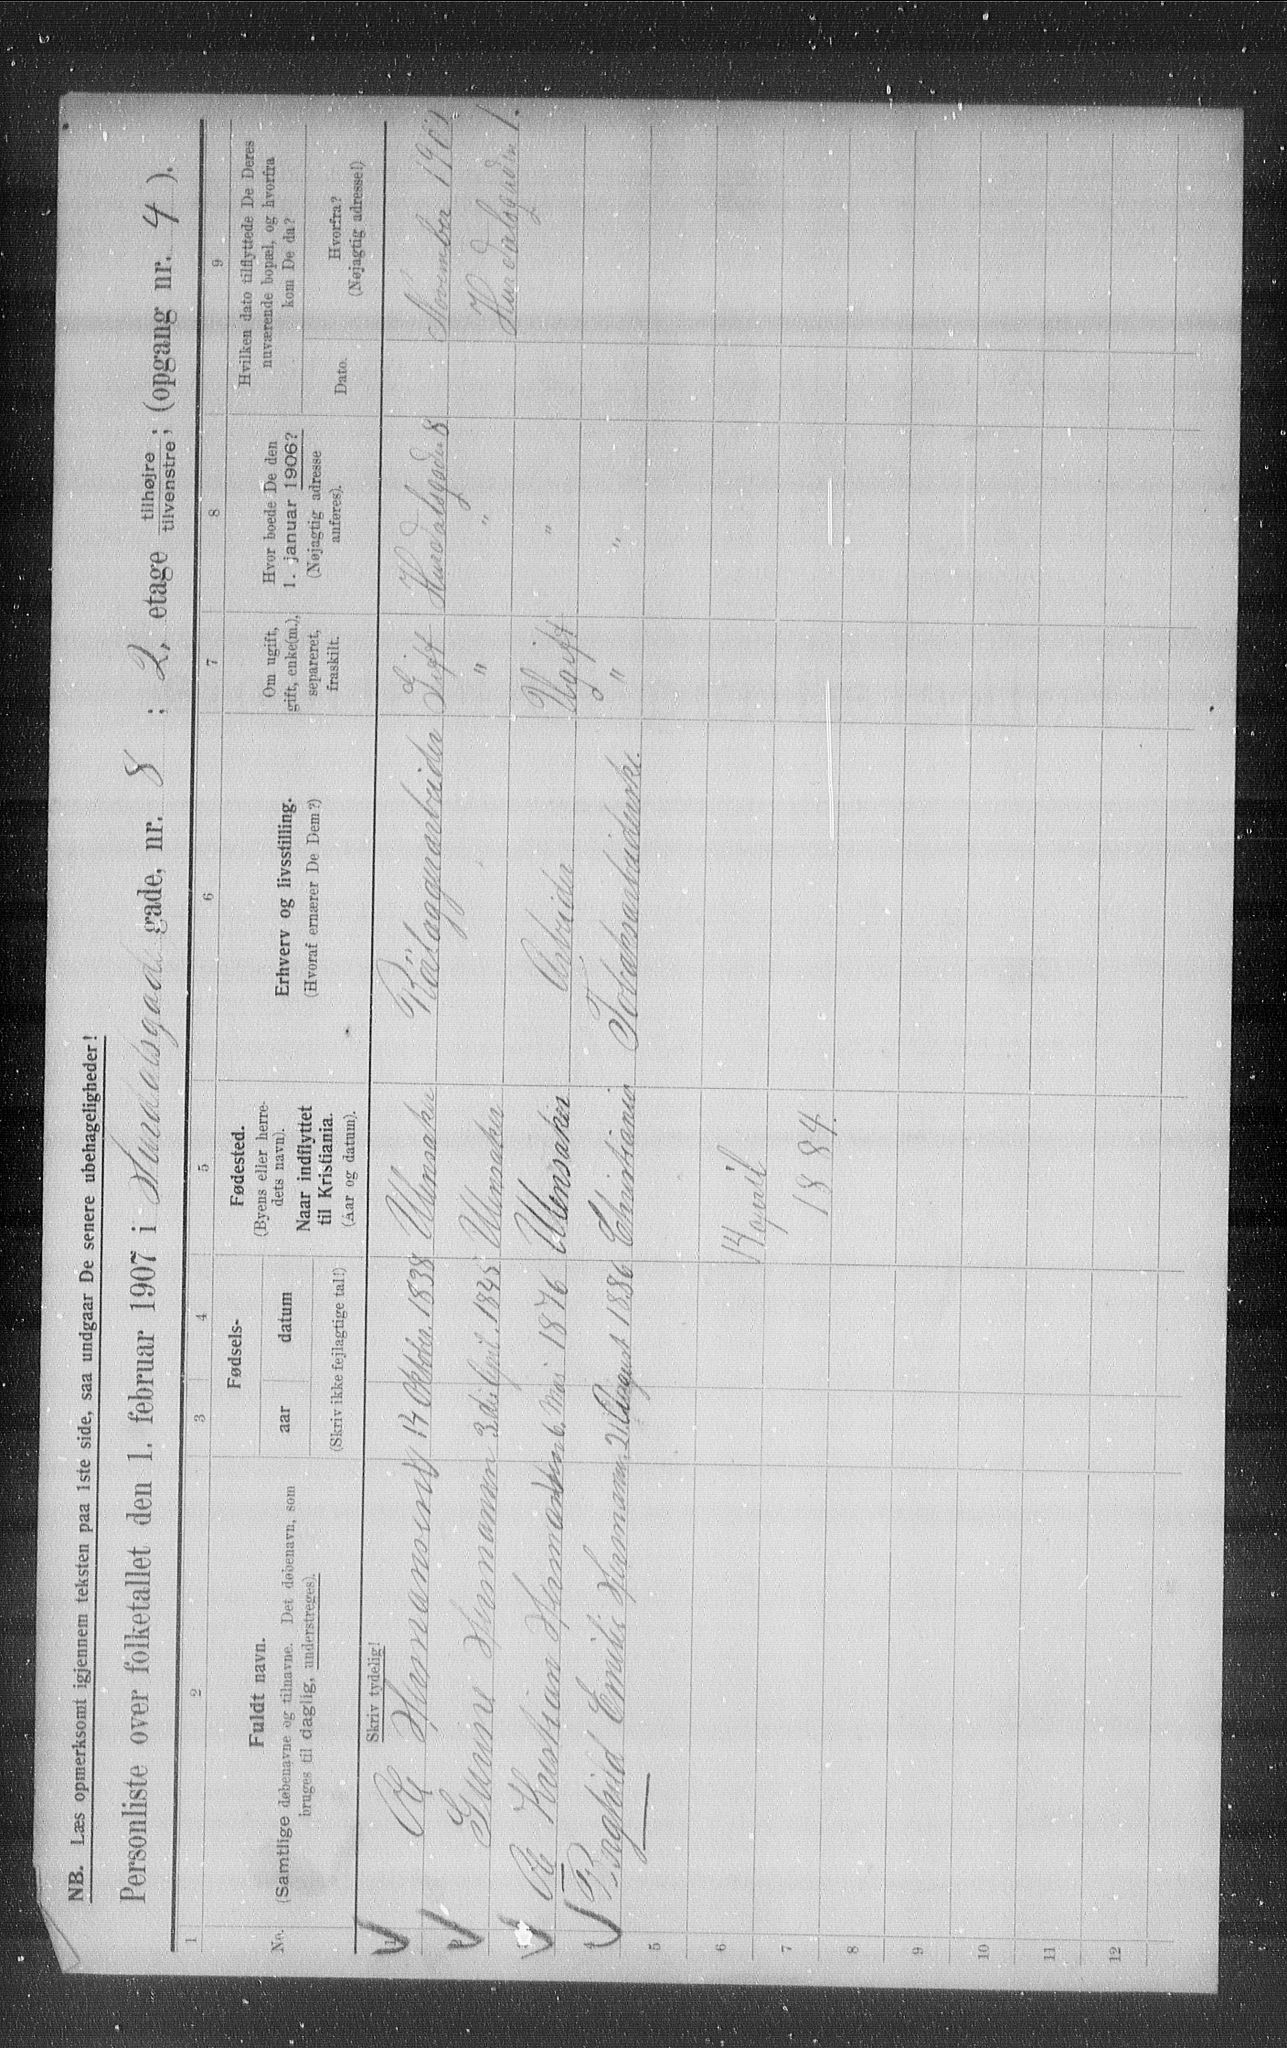 NB. Læs opmerksomt igjennem teksten paa 1ste side, saa undgaar De senere ubehageligheder!
Personliste over folketallet den 1. februar 1907 i Hurdalsgad gade, nr. 8 ; 2. etage tilhøjre / tilvenstre ; (opgang nr. 4 ).
1 2 3 4 5 6 7 8 9
No.
Fuldt navn.
(Samtlige døbenavne og tilnavne. Det døbenavn, som
bruges til daglig, understreges).
Fødsels-
aar datum
(Skriv ikke fejlagtige tal!)
Fødested.
(Byens eller herre-
dets navn).
Naar indflyttet
til Kristiania.
(Aar og datum).
Erhverv og livsstilling.
(Hvoraf ernærer De Dem?)
Om ugift,
gift, enke(m.),
separeret,
fraskilt.
Hvor boede De den
1. januar 1906?
(Nøjagtig adresse
anføres).
Hvilken dato tilflyttede De Deres
nuværende bopæl, og hvorfra
kom De da?
Dato.
Hvorfra?
(Nøjagtig adresse!)
Skriv tydelig!
1 Ole Hermansen 14 Oktober 1838 Ullensaker Rörlæggerarbeider Gift Hurdalsgaden 8 November 1901
2 Gunine Hermansen 3die April 1845 Ullensaker " " Hurdalsgaden 1.
3 Ole Kristian Hermansen 6. Mai 1876 Ullensaker Arbeider Ugift "
4 Ragnhild Emilie Hermansen 21 August 1886 Christiania Tobaksarbeiderske. " "
5
6 14 April
7 1884.
8
9
10
11
12